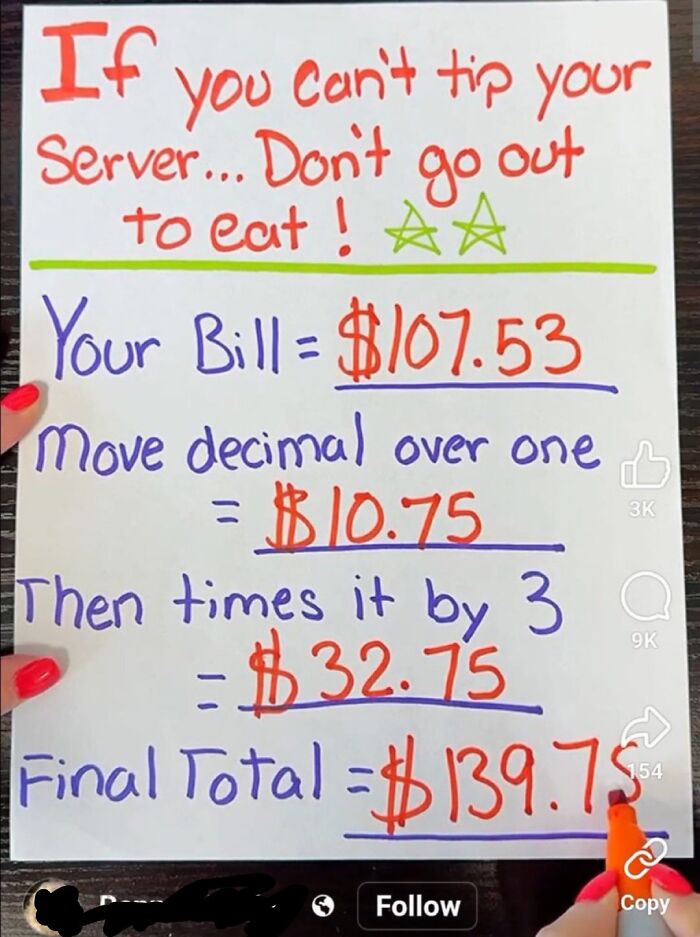 If you can't tip your
Server... Don't go out
to eat!
Your Bill = $107.53
Move decimal over one
= $10.75
Then times it by 3
= $32.75
Final Total = $139.75
3K
9K
154
Copy
Follow